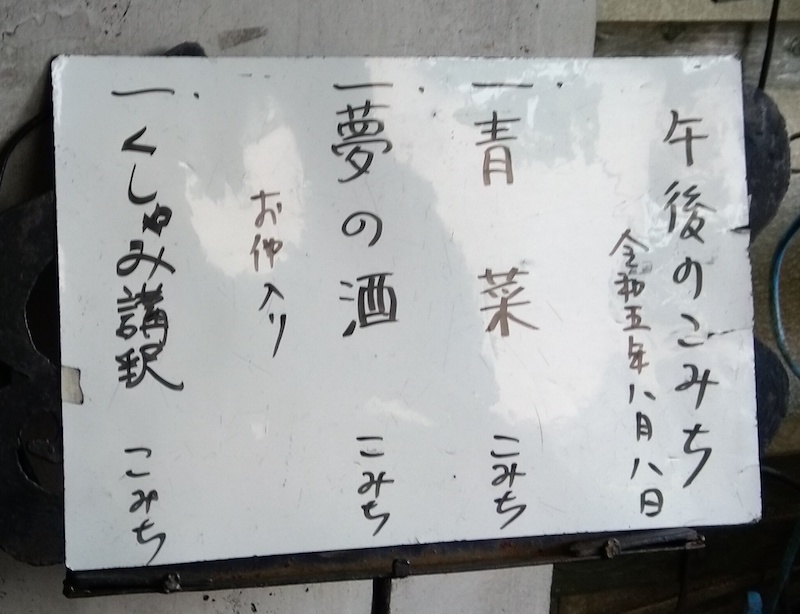 午後のこみち
令和五年八月八日
一. 青菜 こみち
一. 夢の酒 こみち
お仲入り
一. くしゃみ講釈 こみち